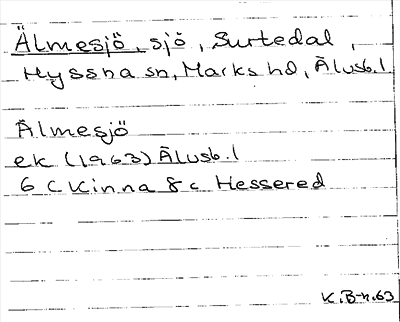 Älmesjö, sjö, Surtedal,
Hyssna sn, Marks hd, Älvsb. l
Älmesjö
ek (1963) Älvsb. l
6 c Kinna 8 c Hessered
K.B-n.63